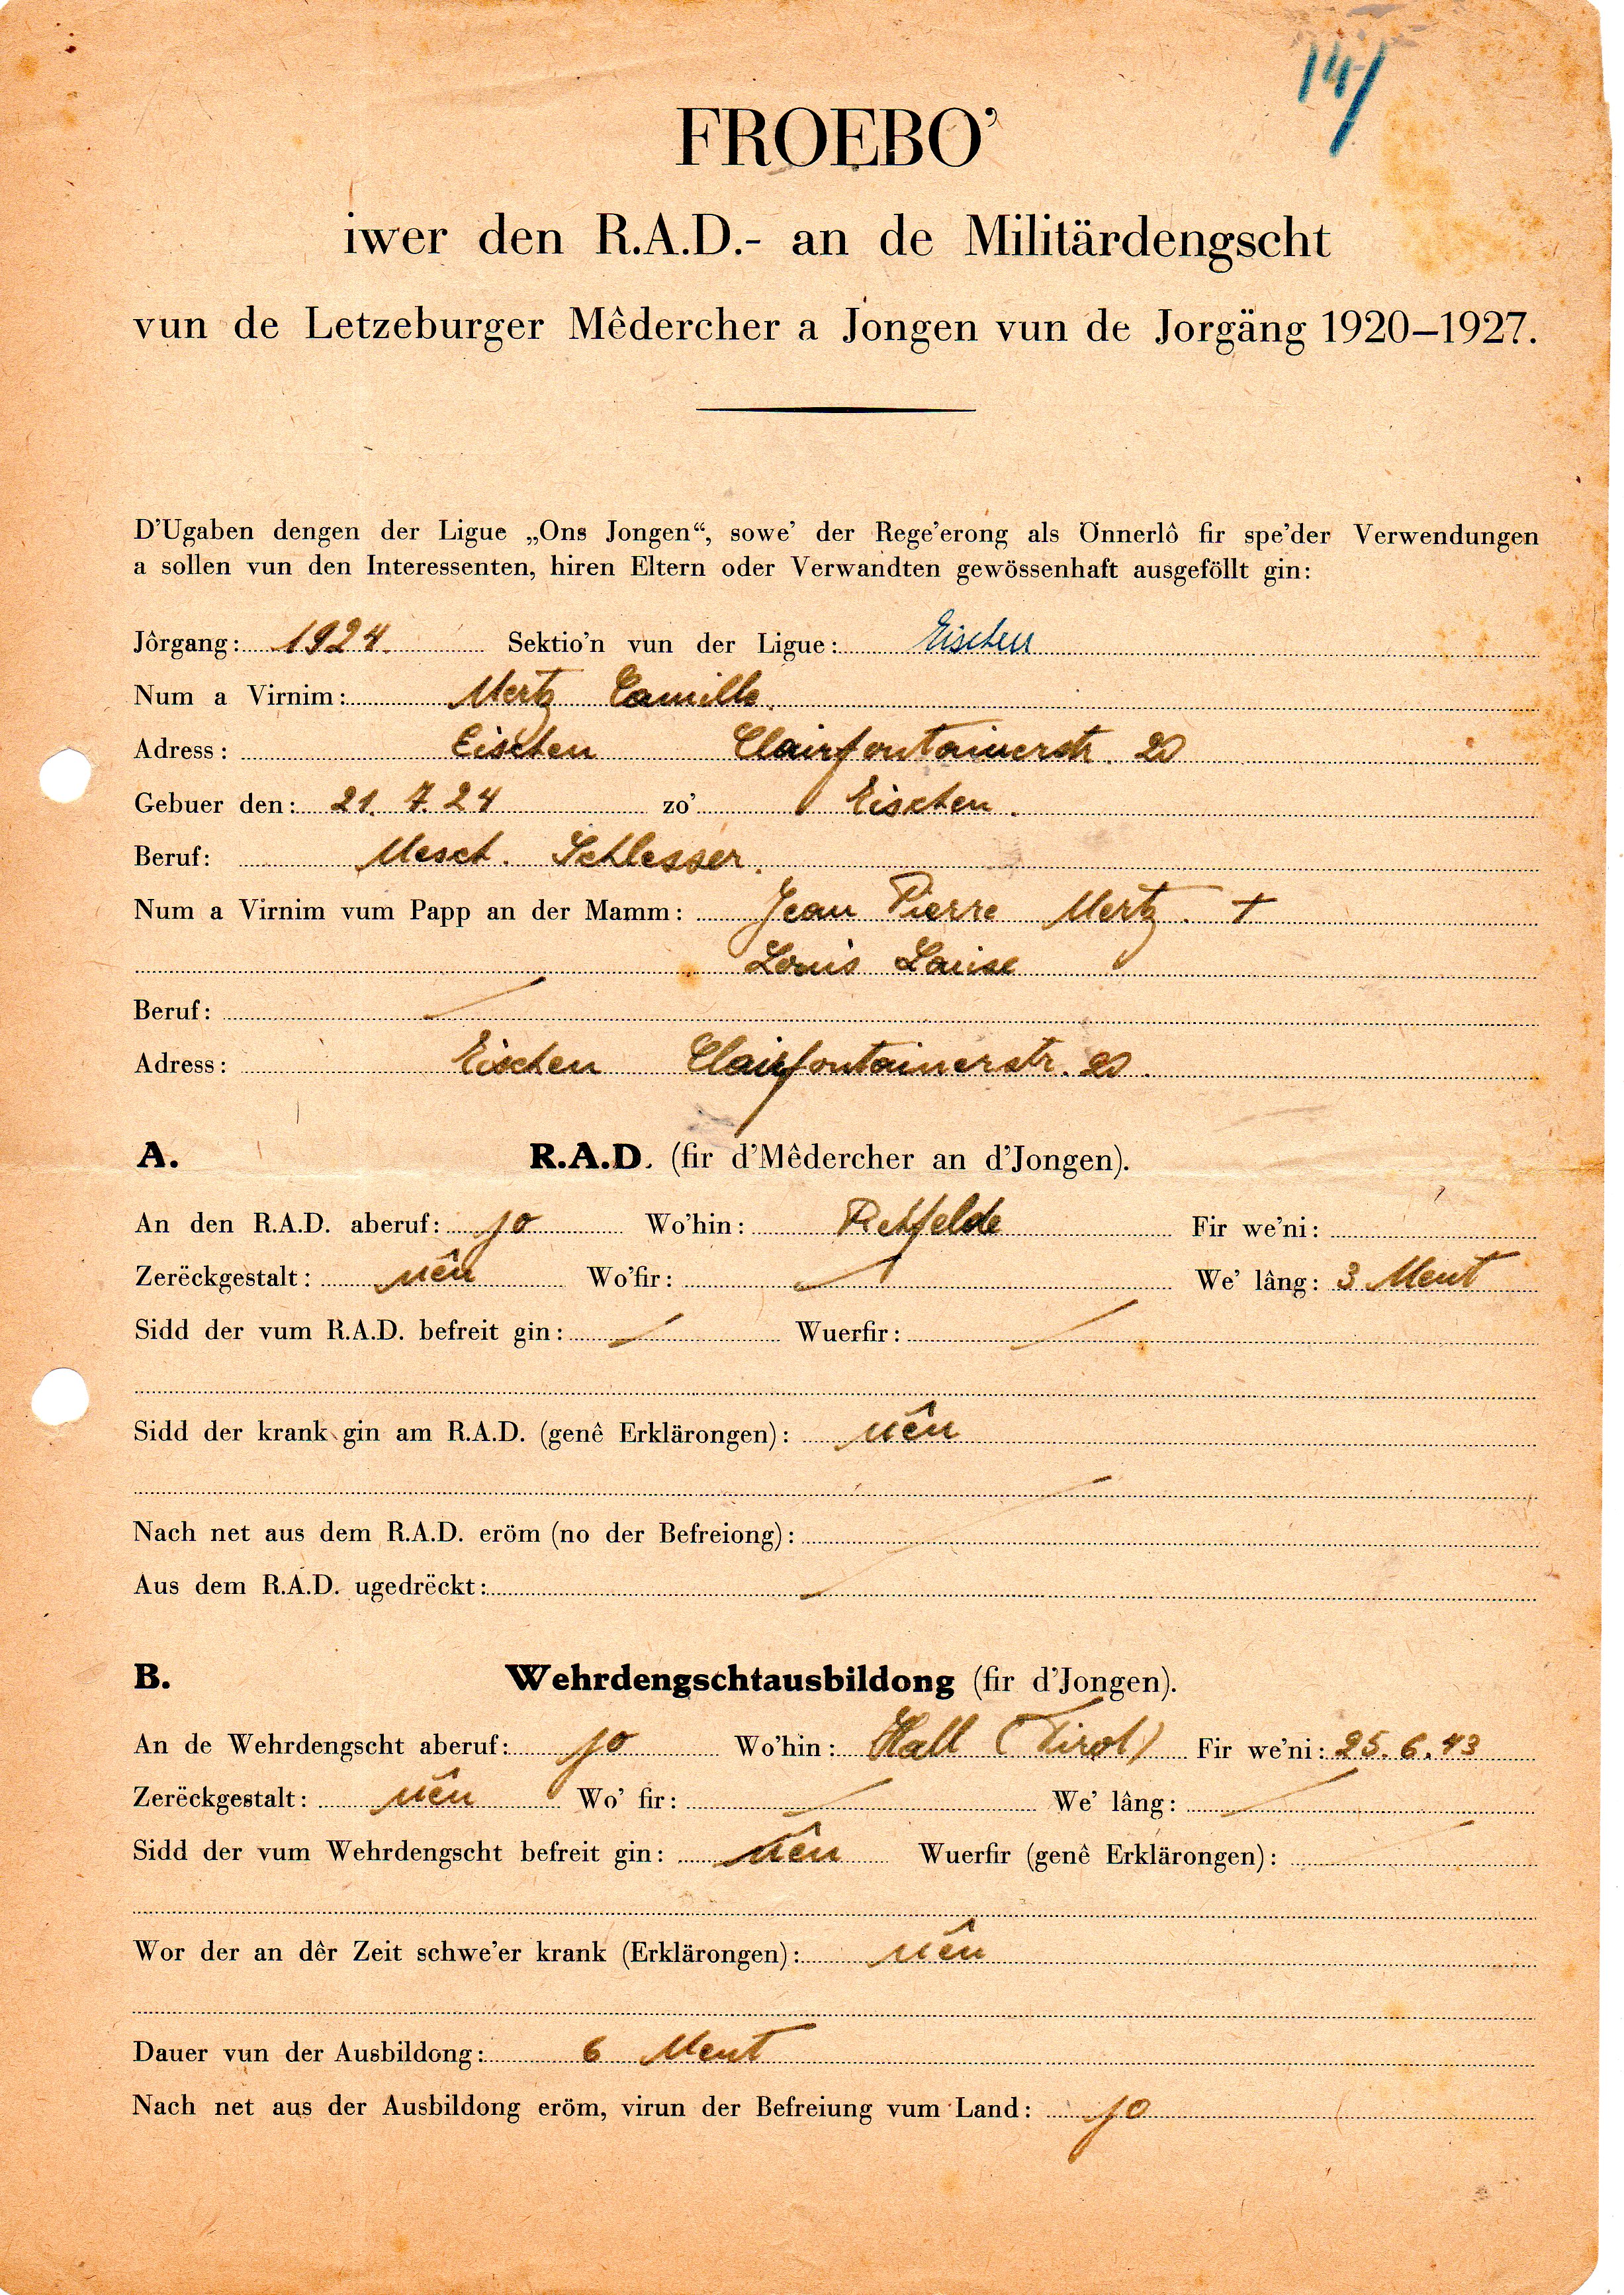 14/
FROEBO'
iwer den R.A.D.- an de Militärdengscht
vun de Letzeburger Mêdercher a Jongen vun de Jorgäng 1920–1927.
D'Ugaben dengen der Ligue „Ons Jongen“, sowe' der Rege'erong als Önnerlô fir spe'der Verwendungen
a sollen vun den Interessenten, hiren Eltern oder Verwandten gewössenhaft ausgeföllt gin:
Jôrgang: 1924. Sektio'n vun der Ligue: Eischen
Num a Virnim: Mertz Camille.
Adress: Eischen Clairfontainerstr. 20
Gebuer den: 21. 7. 24 zo' Eischen.
Beruf: Mesch. Schlesser.
Num a Virnim vum Papp an der Mamm: Jean Pierre Mertz. +
Louis Louise
Beruf:
Adress: Eischen Clairfontainerstr. 20.
A. R.A.D. (fir d'Mêdercher an d'Jongen).
An den R.A.D. aberuf: jo Wo'hin: Fir we'ni:
Zerëckgestalt: nên Wo'fir: We' lâng: 3 Ment
Sidd der vum R.A.D. befreit gin: Wuerfir:
Sidd der krank gin am R.A.D. (genê Erklärongen): nên
Nach net aus dem R.A.D. eröm (no der Befreiong):
Aus dem R.A.D. ugedrëckt:
B. Wehrdengschtausbildong (fir d'Jongen).
An de Wehrdengscht aberuf: jo Wo'hin: Hall (Tirol) Fir we'ni: 25. 6. 43
Zerëckgestalt: nên Wo' fir: We' lâng:
Sidd der vum Wehrdengscht befreit gin: nên Wuerfir (genê Erklärongen):
Wor der an dêr Zeit schwe'er krank (Erklärongen): nên
Dauer vun der Ausbildong: 6 Ment
Nach net aus der Ausbildong eröm, virun der Befreiung vum Land: jo